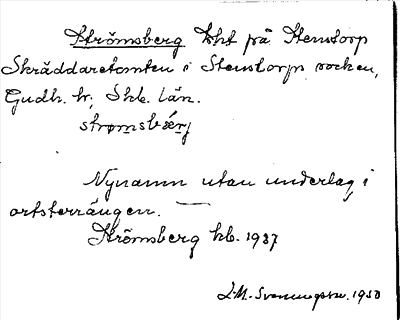 Strömsberg tht på Stenstorp
Skräddaretomten i Stenstorps socken,
Gudh. hr, Skb. län.
strømsbærj
Nynamn utan underlag i
ortsterrängen. —
Strömsberg kb. 1937
J.M. Svenungsson. 1950